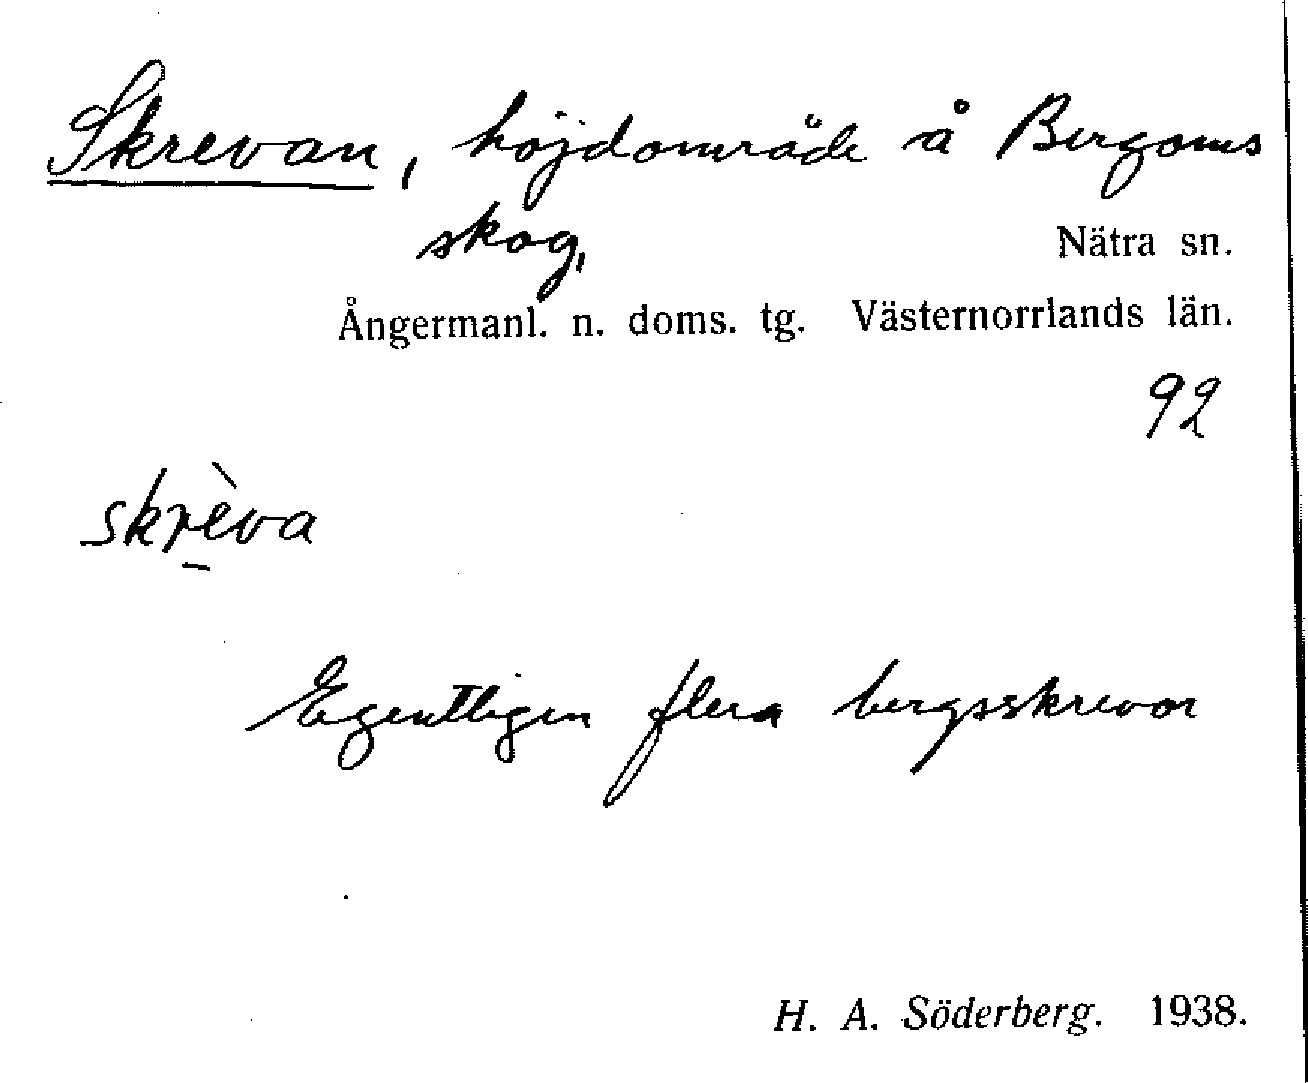 Skrevan, höjdområde å Bergoms
skog,
Nätra sn.
Ångermanl. n. doms. tg. Västernorrlands län.
92
skrèva
Egentligen flera bergsskrevor
H. A. Söderberg. 1938.